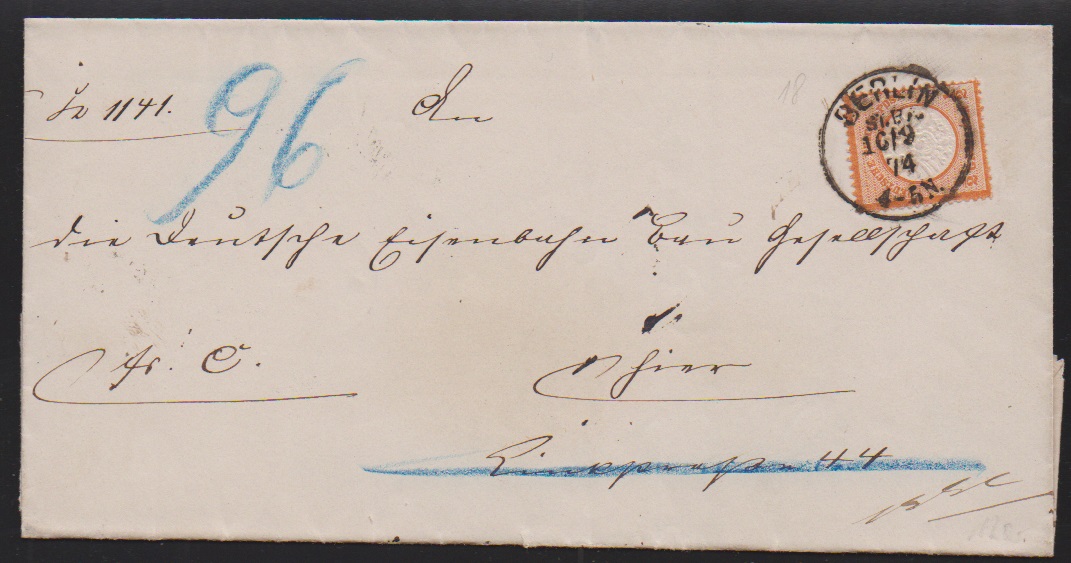 1141.
96
An
18
BERLIN
16/9
74
4-5N.
die Deutsche Eisenbahn Bau Gesellschaft
fr. C.
hier
Linkstraße 44